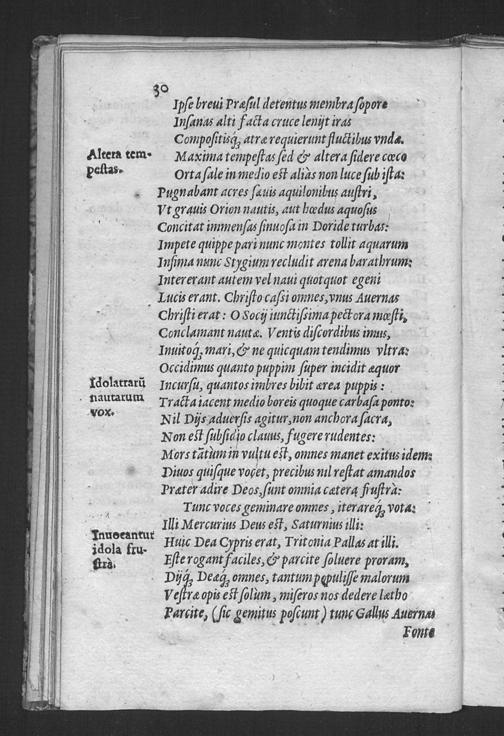 30
Ipſe breui Præſul detentus membra ſopore
Inſanas alti facta cruce lenijt iras
Compoſitisq́; atræ requierunt fluctibus vndæ.
Altera tem-
peſtas.
Maxima tempeſtas ſed & altera ſidere cæco
Orta ſale in medio eſt aliàs non luce ſub iſta:
Pugnabant acres ſæuis aquilonibus auſtri,
Vt grauis Orion nautis, aut hœdus aquoſus
Concitat immenſas ſinuoſa in Doride turbas:
Impete quippe pari nunc montes tollit aquarum
Infima nunc Stygium recludit arena barathrum:
Intererant autem vel naui quotquot egeni
Lucis erant. Chriſto caſsi omnes, vnus Auernas
Chriſti erat: O Socij iunctiſsima pectora mœſti,
Conclamant nautæ. Ventis diſcordibus imus,
Inuitoq́; mari, & ne quicquam tendimus vltra:
Occidimus quanto puppim ſuper incidit æquor
Idolatrarū
nautarum
vox.
Incurſu, quantos imbres bibit ærea puppis:
Tracta iacent medio boreis quoque carbaſa ponto:
Nil Dijs aduerſis agitur, non anchora ſacra,
Non eſt ſubſidio clauus, fugere rudentes:
Mors tãtùm in vultu eſt, omnes manet exitus idem:
Diuos quiſque vocet, precibus nil reſtat amandos
Præter adire Deos, ſunt omnia cætera fruſtrà:
Tunc voces geminare omnes, iterareq́; vota:
Illi Mercurius Deus eſt, Saturnius illi:
Inuocantur
idola fru-
ſtrà.
Huic Dea Cypris erat, Tritonia Pallas at illi.
Eſte rogant faciles, & parcite ſoluere proram,
Dijq́; Deæq́; omnes, tantum pepuliſſe malorum
Veſtræ opis eſt ſolùm, miſeros nos dedere lætho
Parcite, (ſic gemitus poſcunt) tunc Gallus Auernas
Fonte